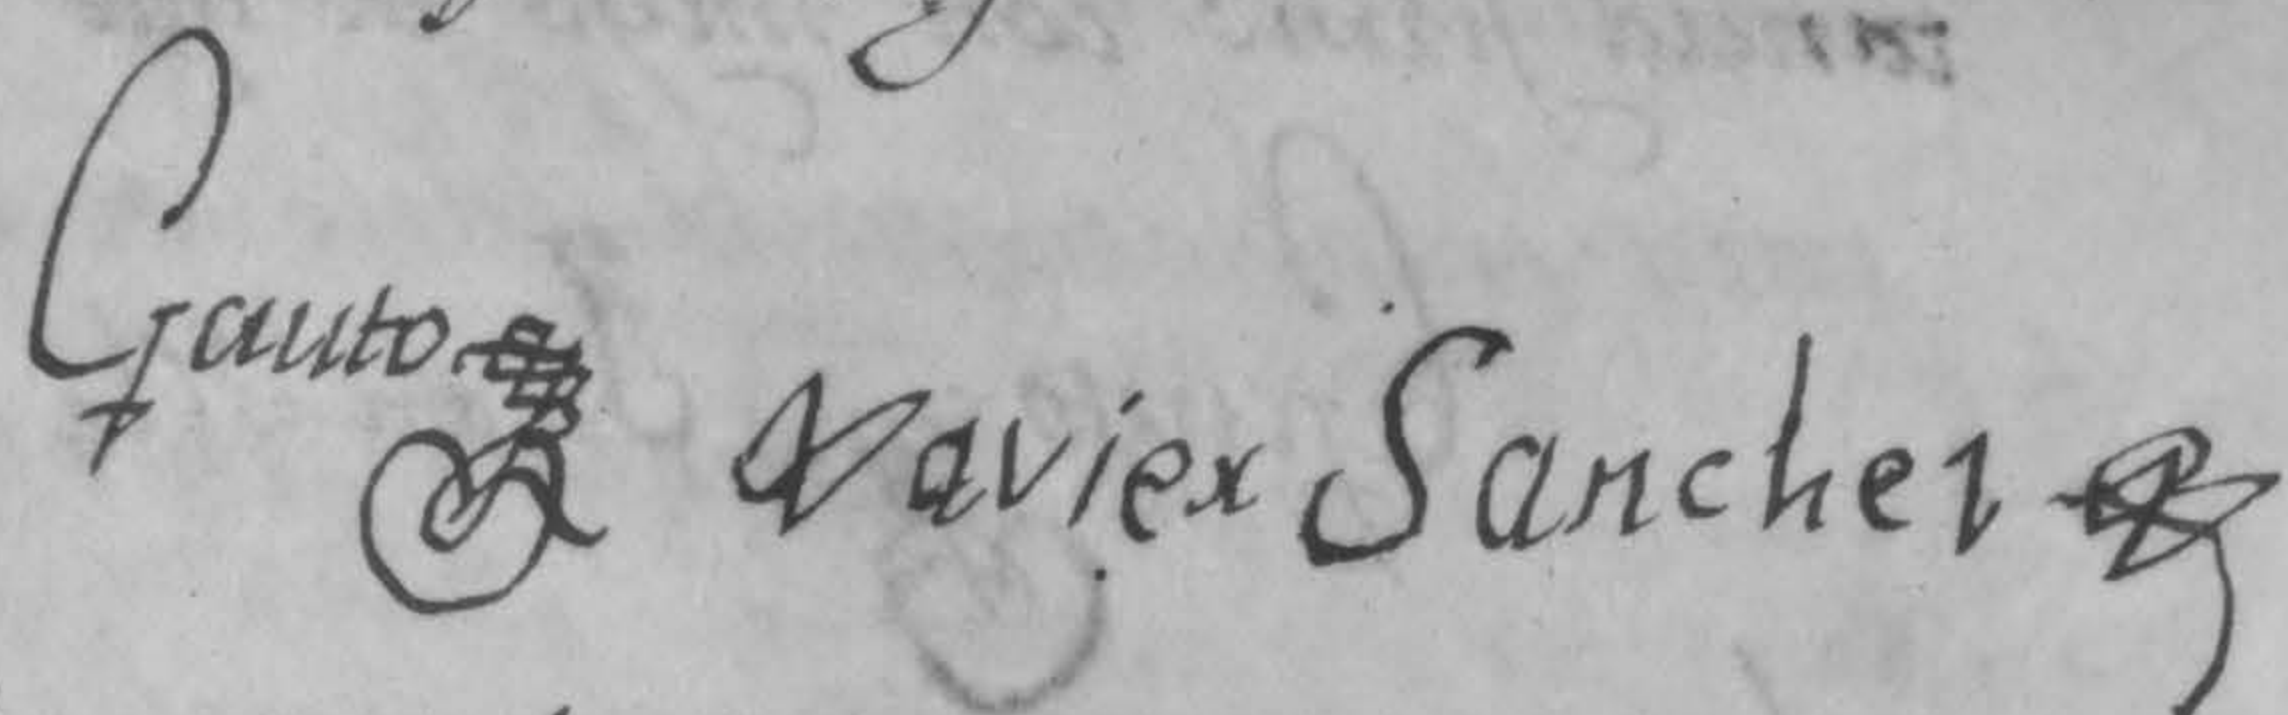 Gauto
Xavier Sanchez